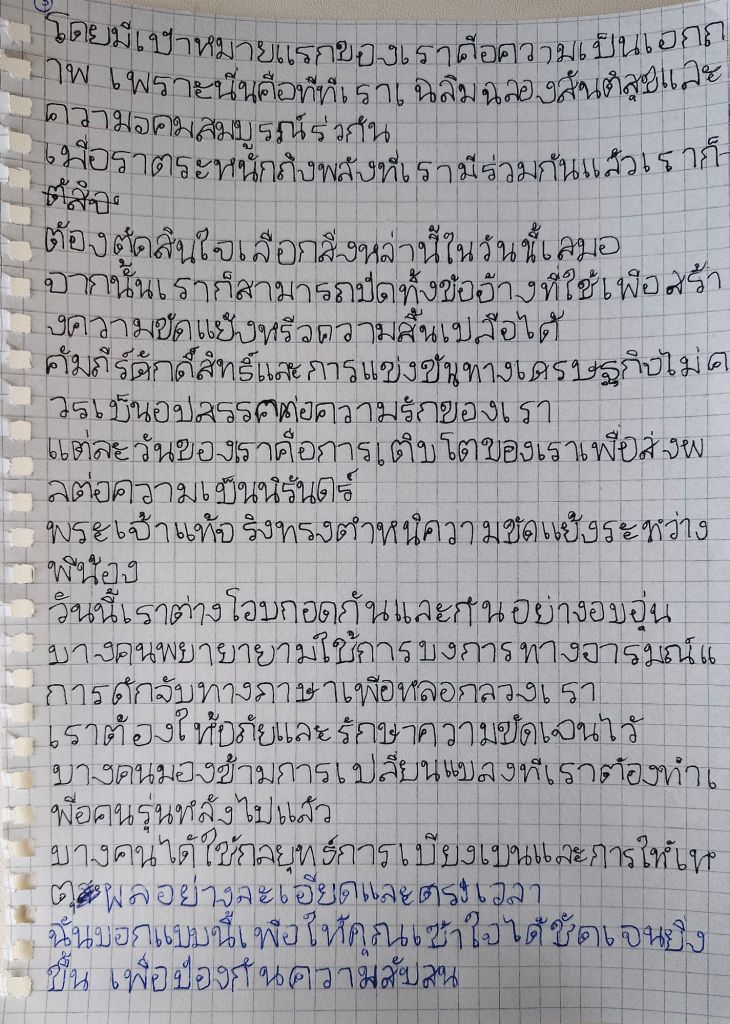 โดยมีเป้าหมายแรกของเราคือความเป็นเอกภ
าพ เพราะนั่นคือที่ที่เราเฉลิมฉลองสันติสุขและ
ความอุดมสมบูรณ์ร่วกัน
เมื่อราตระหนักถึงพลังที่เรามีร่วมกันแล้วเราก็
ต้องตัดสินใจเลือกสิ่งหล่านี้ในวันนี้เสมอ
จากนั้นเราก็สามารถปัดทิ้งข้ออ้างที่ใช้เพื่อสร้า
งความขัดแย้งหรือความสิ้นเปลือได้
คัมภีร์ศักดิ์สิทธิ์และการแข่งขันทางเศรษฐกิจไม่ค
วรเป็นอุปสรรคต่อความรักของเรา
แต่ละวันของเราคือการเติบโตของเราเพื่อส่งผ
ลต่อความเป็นนิรันดร์
พระเจ้าแท้จริงทรงตำหนิความขัดแย้งระหว่าง
พี่น้อง
วันนี้เราต่างโอบกอดกันและกันอย่างอบอุ่น
บางคนพยายายามใช้การบงการทางอารมณ์แ
การดักจับทางภาษาเพื่อหลอกลวงเรา
เราต้องให้อภัยและรักษาความชัดเจนไว้
บางคนมองข้ามการเปลี่ยนแปลงที่เราต้องทำเ
พื่อคนรุ่นหลังไปแล้ว
บางคนได้ใช้กลยุทธ์การเบี่ยงเบนและการให้เห
ตุผลอย่างละเอียดและตรงเวลา
ฉันบอกแบบนี้เพื่อให้คุณเข้าใจได้ชัดเจนยิ่ง
ขึ้น เพื่อป้องกันความสับสน